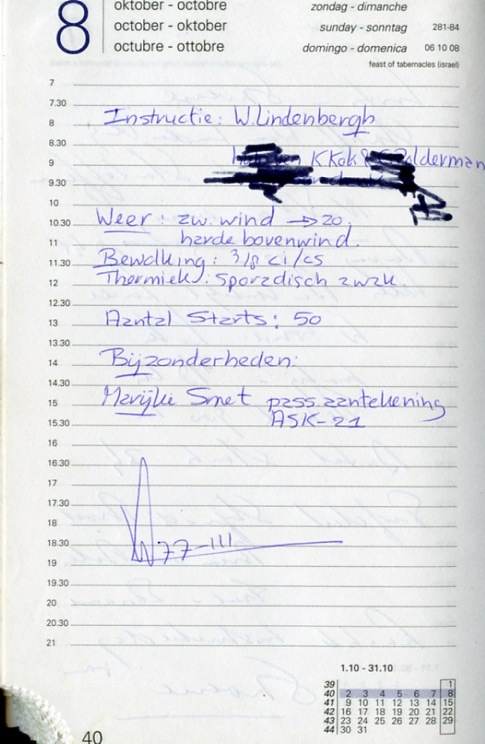 8
oktober - octobre
october - oktober
octubre - ottobre
zondag - dimanche
sunday - sonntag
domingo - domenica
281-84
06 10 08
feast of tabernacles (israel)
7
7.30
8 Instructie: W. Lindenbergh
8.30
9 K Kok
9.30
10
10.30 Weer: zw. wind → 20.
11 harde bovenwind.
11.30 Bewolking: 3/8 ci/cs
12 Thermiek: sporadisch zwak.
12.30
13 Aantal Starts: 50
13.30
14 Bijzonderheden:
14.30
15 Marijke Smet pass. aantekening
15.30 ASK-21
16
16.30
17
17.30
18
18.30 77-III
19
19.30
20
20.30
21
1.10 - 31.10
39 1
40 2 3 4 5 6 7 8
41 9 10 11 12 13 14 15
42 16 17 18 19 20 21 22
43 23 24 25 26 27 28 29
44 30 31
40